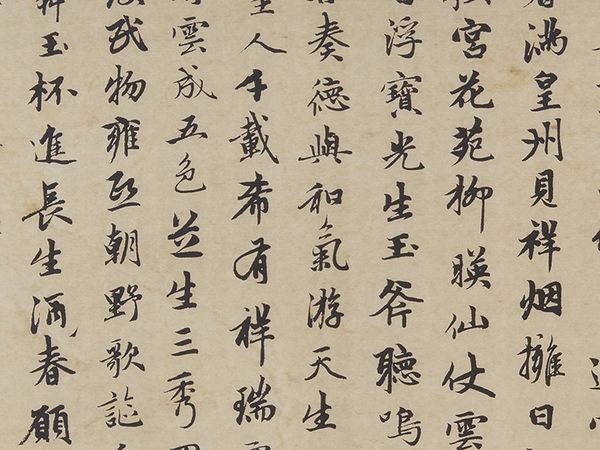 滿皇州見祥烟擁日
宮花苑柳暎仙仗雲
浮寶光生玉斧聽鳴
奏德與和氣游天生
人千載希有祥瑞
雲成五色芝生三秀
民物雍熙朝野歌謳
玉杯進長生酒春願